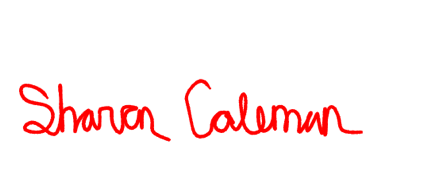 Sharon Caleman